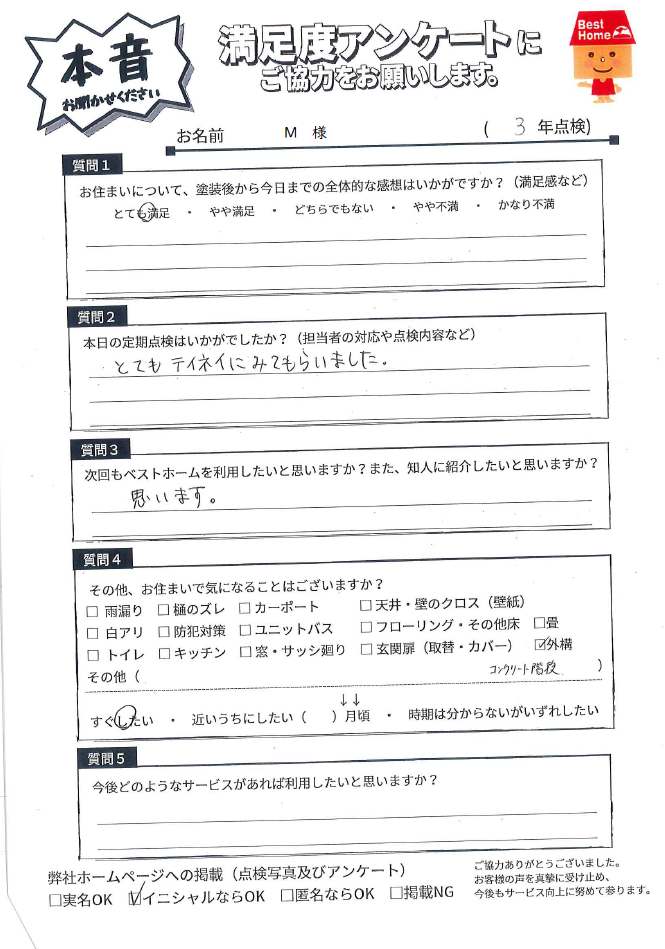 本音
お聞かせください
満足度アンケートに
ご協力をお願いします。
Best
Home
お名前 M 様 ( 3 年点検)
質問1
お住まいについて、塗装後から今日までの全体的な感想はいかがですか？（満足感など）
とても満足 ・ やや満足 ・ どちらでもない ・ やや不満 ・ かなり不満
質問2
本日の定期点検はいかがでしたか？（担当者の対応や点検内容など）
とてもテイネイにみてもらいました。
質問3
次回もベストホームを利用したいと思いますか？また、知人に紹介したいと思いますか？
思います。
質問4
その他、お住まいで気になることはございますか？
□ 雨漏り □ 樋のズレ □ カーポート □ 天井・壁のクロス（壁紙）
□ 白アリ □ 防犯対策 □ ユニットバス □ フローリング・その他床 □畳
□ トイレ □ キッチン □ 窓・サッシ廻り □ 玄関扉（取替・カバー） ☑外構
その他（ コンクリート階段 ）
↓↓
すぐしたい ・ 近いうちにしたい（ ）月頃 ・ 時期は分からないがいずれしたい
質問5
今後どのようなサービスがあれば利用したいと思いますか？
弊社ホームページへの掲載（点検写真及びアンケート）
□実名OK ☑イニシャルならOK □匿名ならOK □掲載NG
ご協力ありがとうございました。
お客様の声を真摯に受け止め、
今後もサービス向上に努めて参ります。